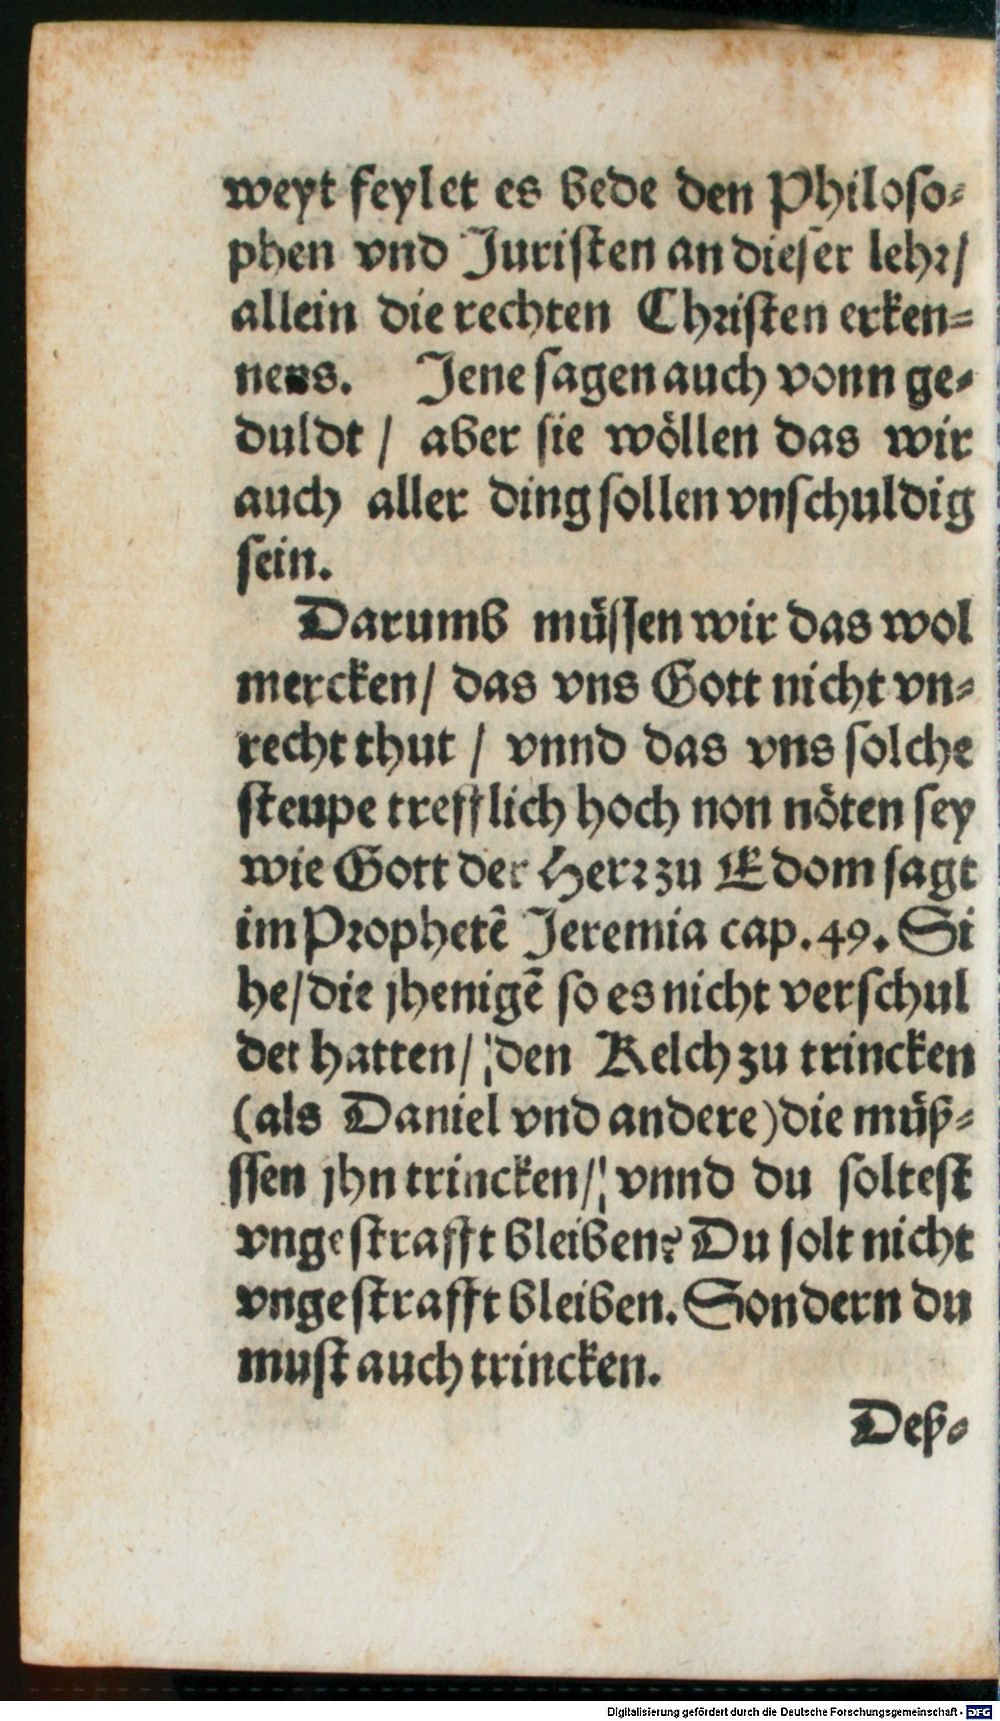 weyt feylet es bede den Philoso-
phen vnd Juristen an dieser lehr/
allein die rechten Christen erken-
nens. Jene sagen auch vonn ge-
duldt / aber sie wöllen das wir
auch aller ding sollen vnschuldig
sein.
Darumb müssen wir das wol
mercken/ das vns Gott nicht vn-
recht thut / vnnd das vns solche
steupe trefflich hoch non nöten sey
wie Gott der Herr zu Edom sagt
im Prophetē Jeremia cap. 49. Si
he/die jhenigē so es nicht verschul
det hatten/ den Kelch zu trincken
(als Daniel vnd andere) die müß-
ssen jhn trincken/ vnnd du soltest
vngestrafft bleiben? Du solt nicht
vngestrafft bleiben. Sondern du
must auch trincken.
Deß-
Digitalisierung gefördert durch die Deutsche Forschungsgemeinschaft - DFG